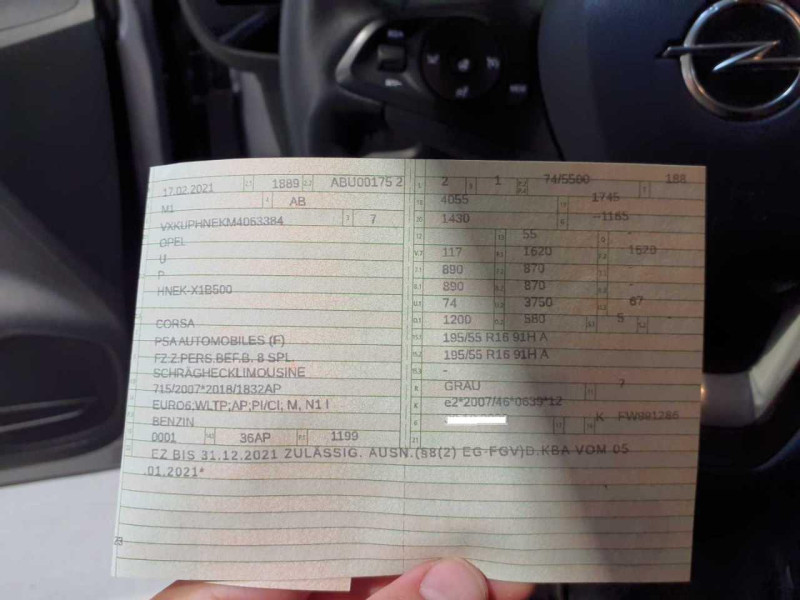 17.02.2021 2.1 1889 2.2 ABU00175 2
M1 4 AB
VXKUPHNEKM4063384 3 7
OPEL
U
P
HNEK-X1B500
CORSA
PSA AUTOMOBILES (F)
FZ.Z.PERS.BEF.B. 8 SPL.
SCHRÄGHECKLIMOUSINE
715/2007*2018/1832AP
EURO6;WLTP;AP;PI/CI; M, N1 I
BENZIN
0001 36AP 1199
2 1 74/5500 188
4055 1745
1430 --1165
55 -
117 1620 1620
890 870 -
890 870 -
74 3750 67
1200 580 5
195/55 R16 91H A
195/55 R16 91H A
-
GRAU 7
e2*2007/46*0639*12
K FW991286
EZ BIS 31.12.2021 ZULÄSSIG. AUSN.(§8(2) EG-FGV)D.KBA VOM 05
01.2021*